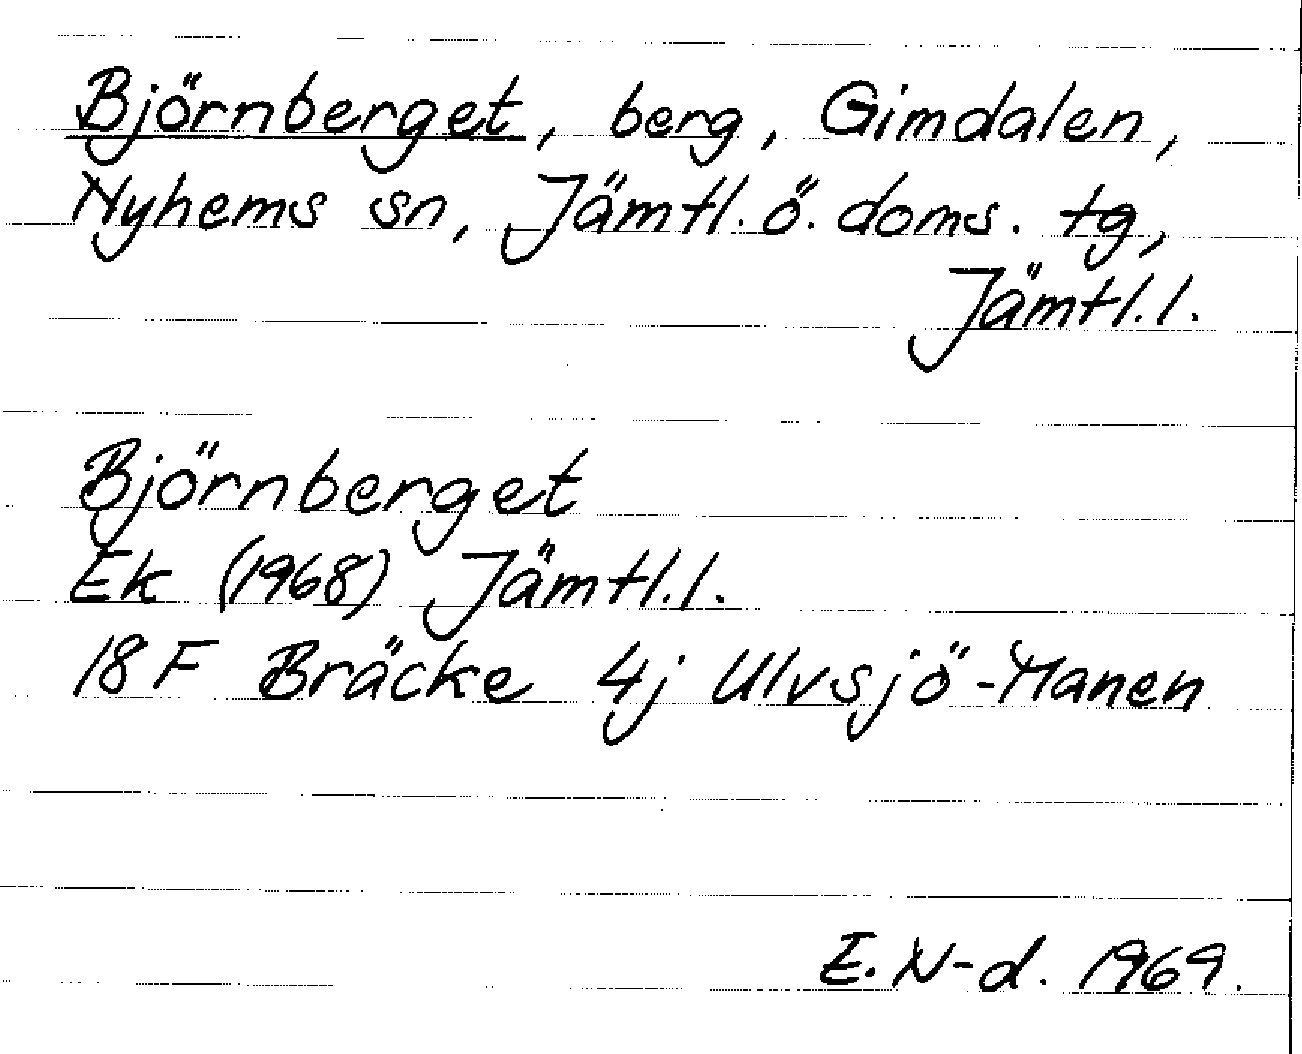 Björnberget, berg, Gimdalen,
Nyhems sn, Jämtl. ö. doms. tg,
Jämtl. l.
Björnberget
Ek (1968) Jämtl. l.
18 F Bräcke 4j Ulvsjö-Manen
E. N-d. 1969.